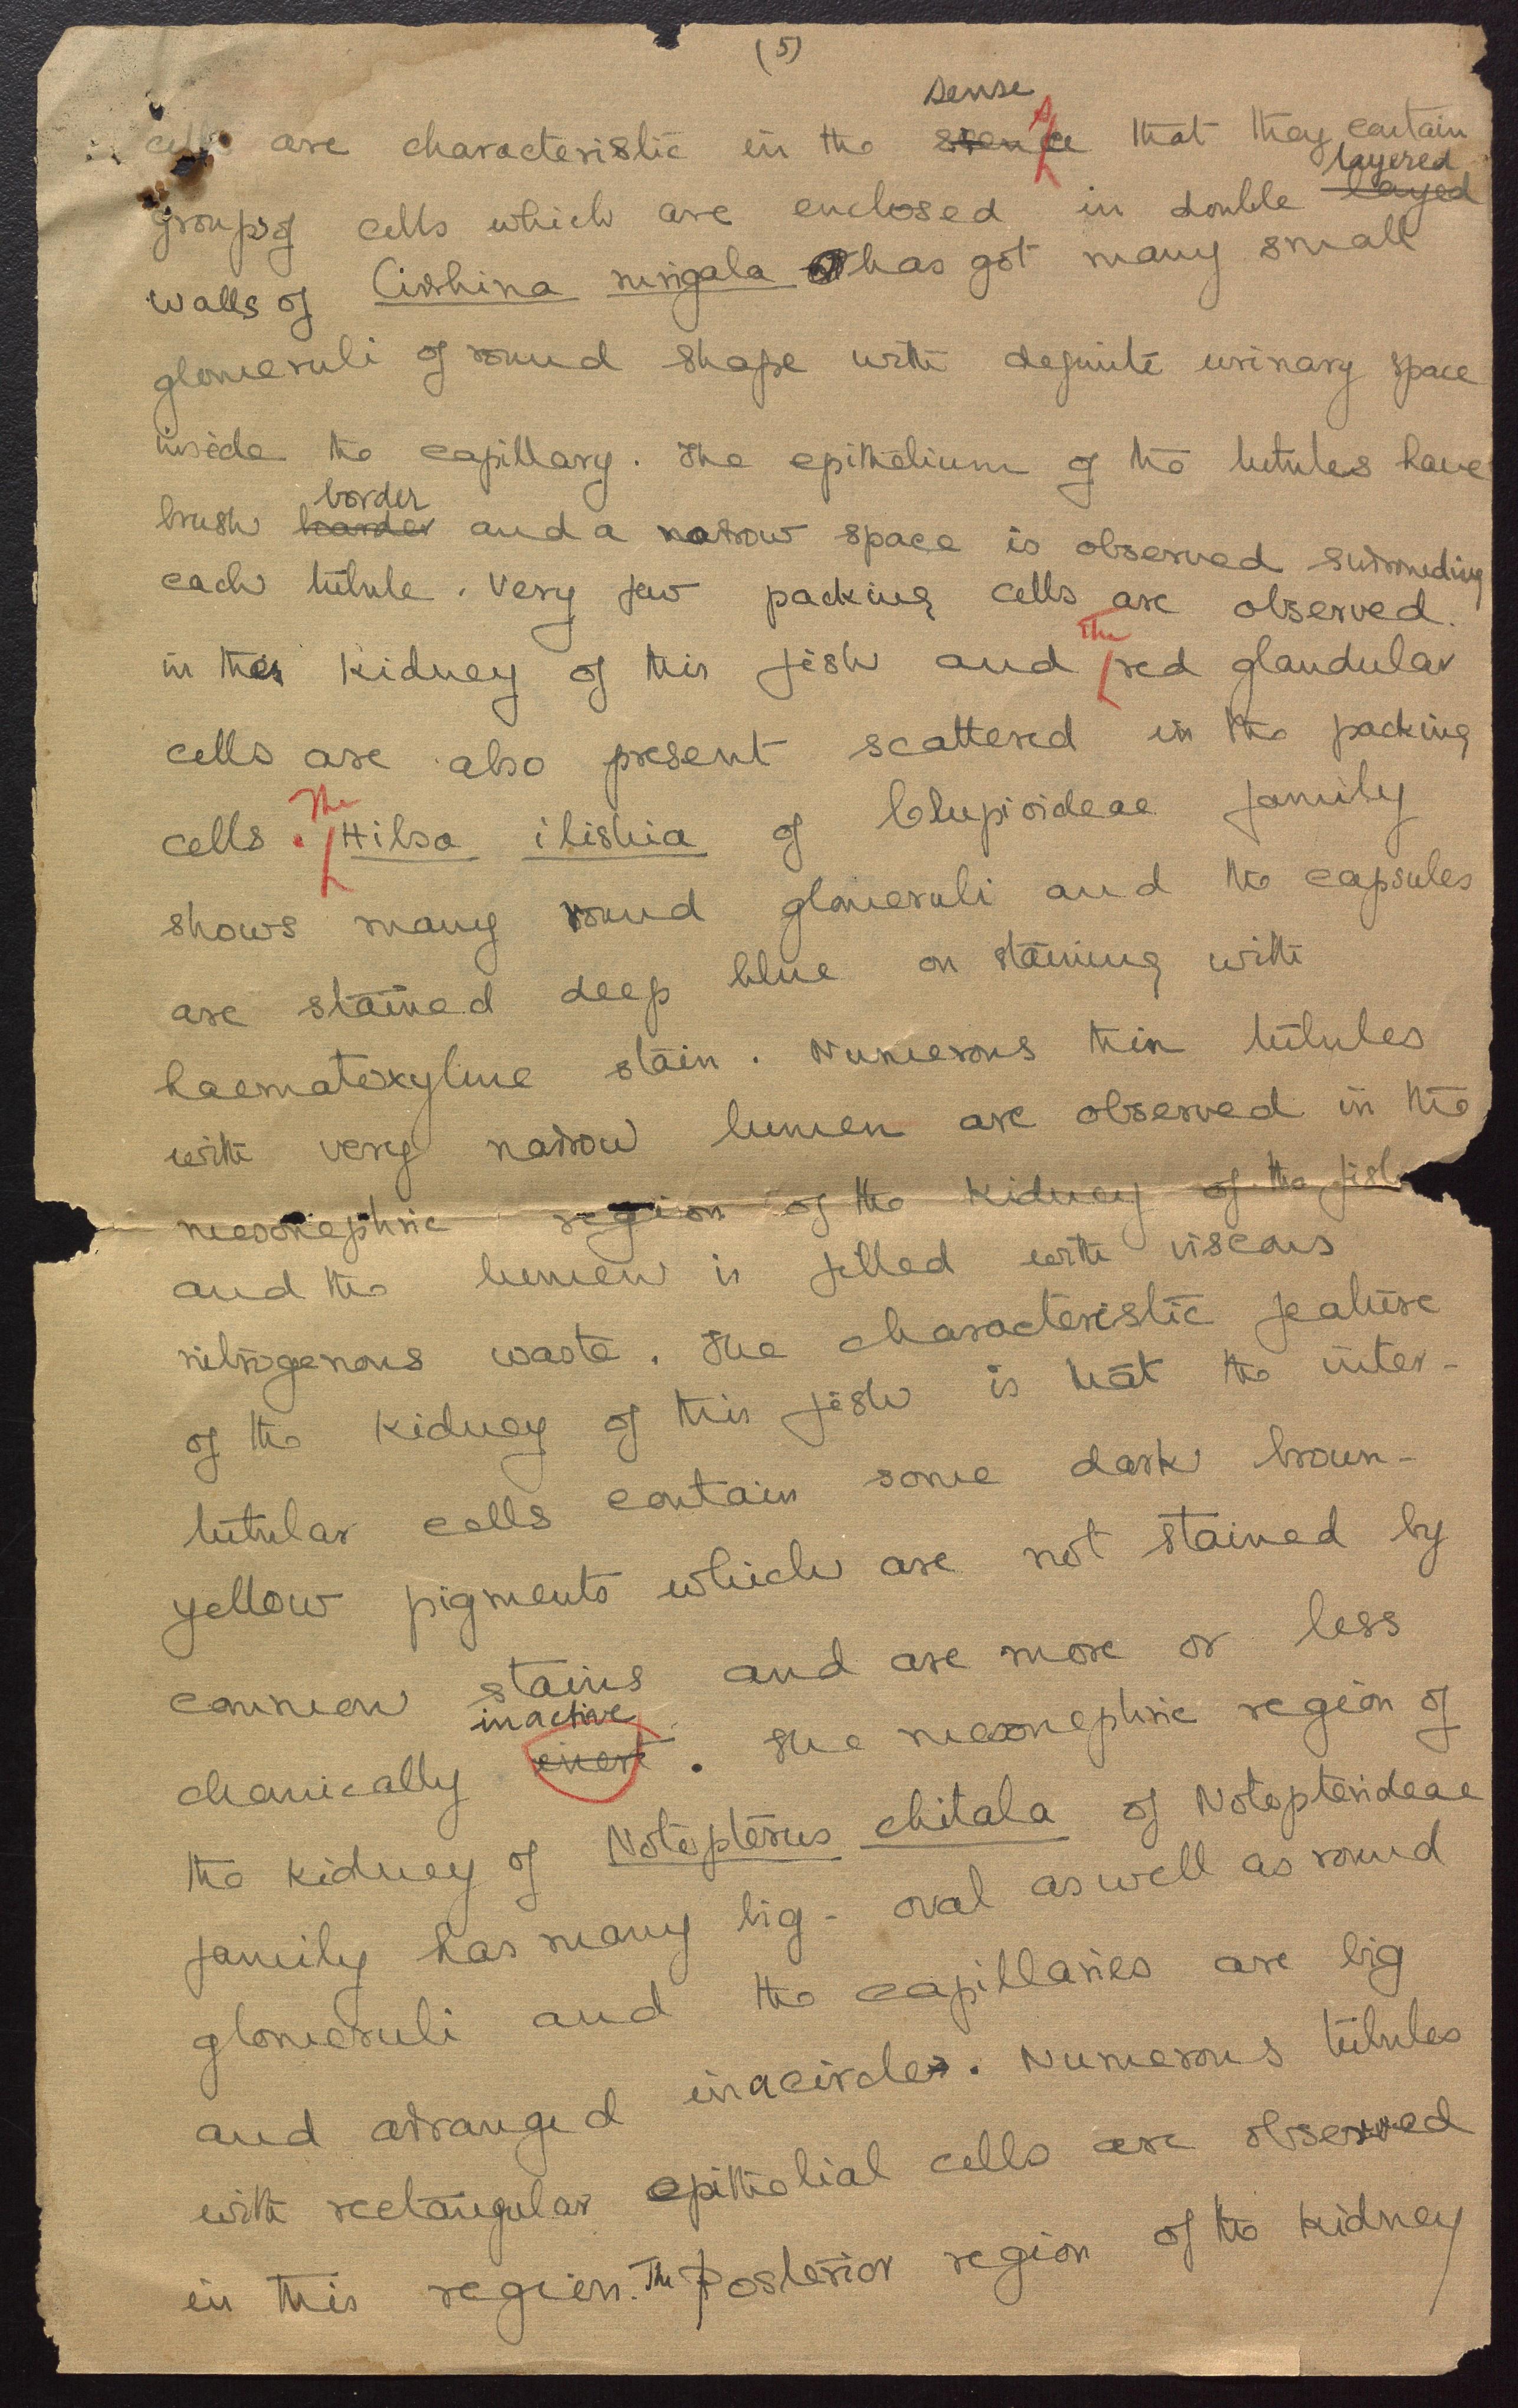 (5)
cells are characteristic in the sense that they contain
groups of cells which are enclosed in double layered
walls of Cirrhina mrigala has got many small
glomeruli of round shape with definite urinary space
inside the capillary. The epithelium of the tubules have
brush border and a narrow space is observed surrounding
each tubule. Very few packing cells are observed.
in the kidney of this fish and The red glandular
cells are also present scattered in the packing
cells. The Hilsa ilishia of Clupioideae family
shows many round glomeruli and the capsules
are stained deep blue on staining with
haematoxyline stain. Numerous thin tubules
with very narrow lumen are observed in the
mesonephric region of the kidney of the fish
and the lumen is filled with viscous
nitrogenous waste. The characteristic feature
of the kidney of this fish is that the inter-
tubular cells contain some dark brown-
yellow pigments which are not stained by
common stains and are more or less
chemically inactive. The mesonephric region of
the kidney of Notopterus chitala of Notopterideae
family has many big - oval as well as round
glomeruli and the capillaries are big
and arranged in a circle. Numerous tubules
with rectangular epithelial cells are observed
in this region. The Posterior region of the kidney